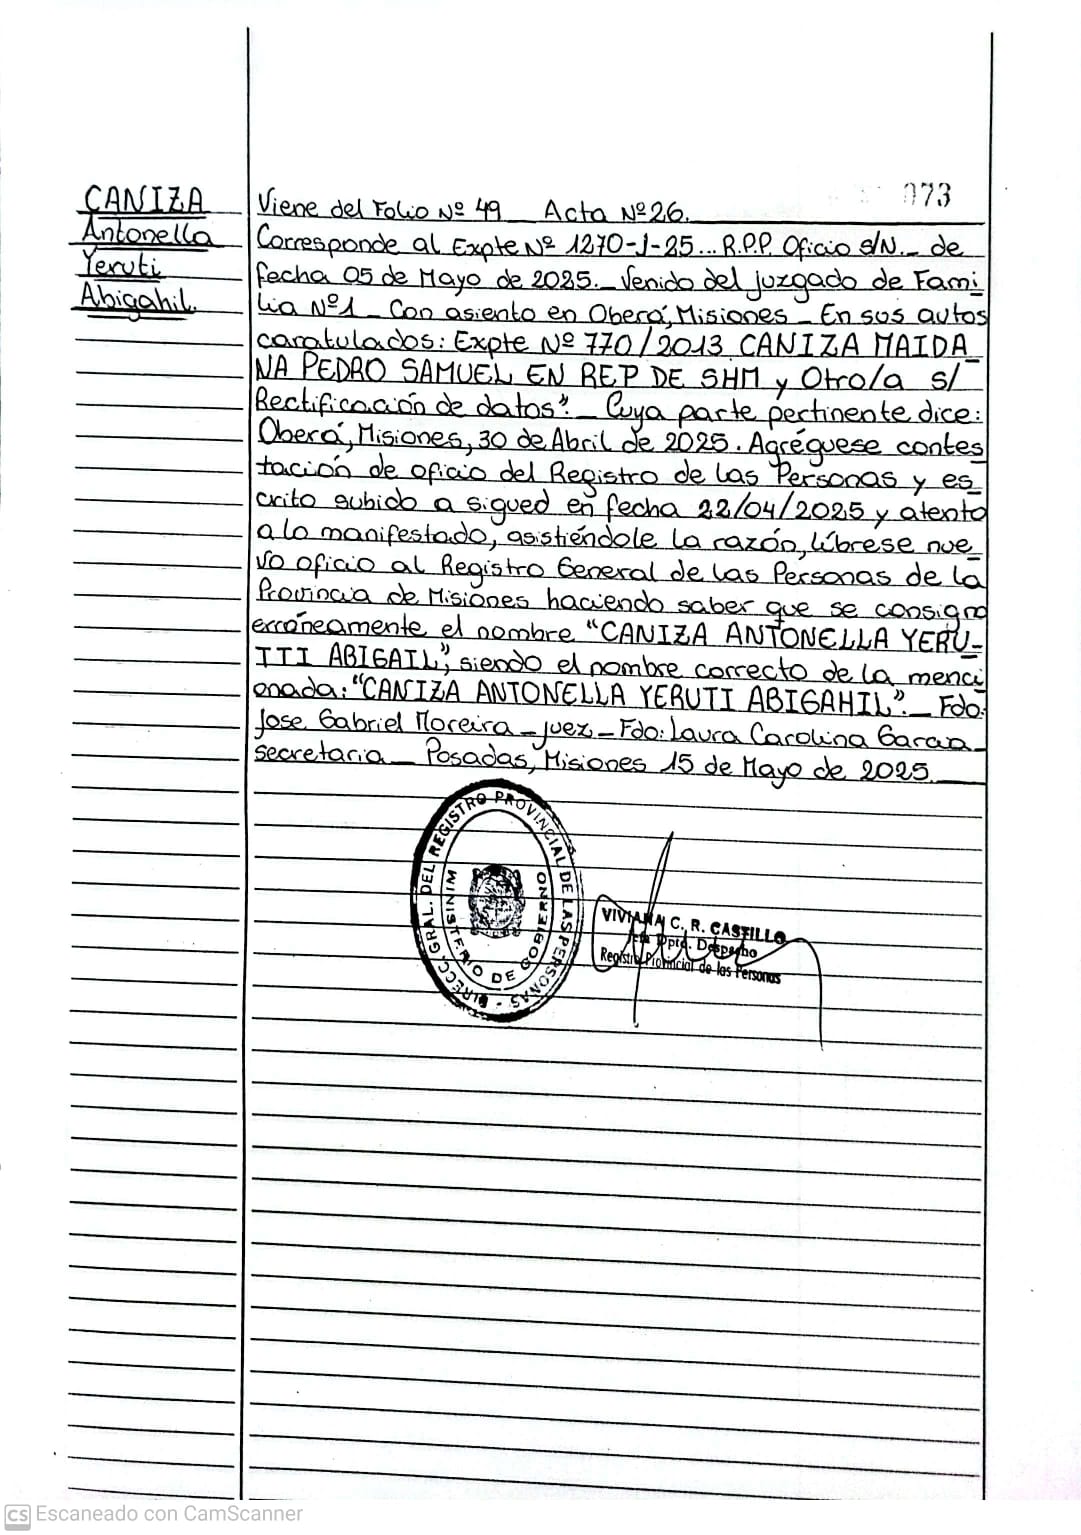 073
CANIZA
Antonella
Yeruti
Abigahil.
Viene del Folio Nº 49 _ Acta Nº 26.
Corresponde al Expte Nº 1270-J-25... R.P.P. Oficio s/N._ de
fecha 05 de Mayo de 2025._ Venido del juzgado de Fami
lia Nº 1 _ Con asiento en Oberá, Misiones _ En sus autos
caratulados: Expte Nº 770/2013 CANIZA MAIDA
NA PEDRO SAMUEL EN REP DE SHM y Otro/a s/
Rectificación de datos"._ Cuya parte pertinente dice:
Oberá, Misiones, 30 de Abril de 2025. Agréguese contes
tación de oficio del Registro de las Personas y es
crito subido a sigued en fecha 22/04/2025 y atento
a lo manifestado, asistiéndole la razón, líbrese nue
vo oficio al Registro General de las Personas de la
Provincia de Misiones haciendo saber que se consigno
erróneamente el nombre "CANIZA ANTONELLA YERU-
TTI ABIGAIL", siendo el nombre correcto de la menci
onada: "CANIZA ANTONELLA YERUTI ABIGAHIL"._ Fdo:
Jose Gabriel Moreira _ juez _ Fdo: Laura Carolina Garcia _
secretaria _ Posadas, Misiones 15 de Mayo de 2025.
DIRECC. GRAL. DEL REGISTRO PROVINCIAL DE LAS PERSONAS -
MINISTERIO DE GOBIERNO
VIVIANA C. R. CASTILLO
Jefa Dpto. Despacho
Registro Provincial de las Personas
CS Escaneado con CamScanner